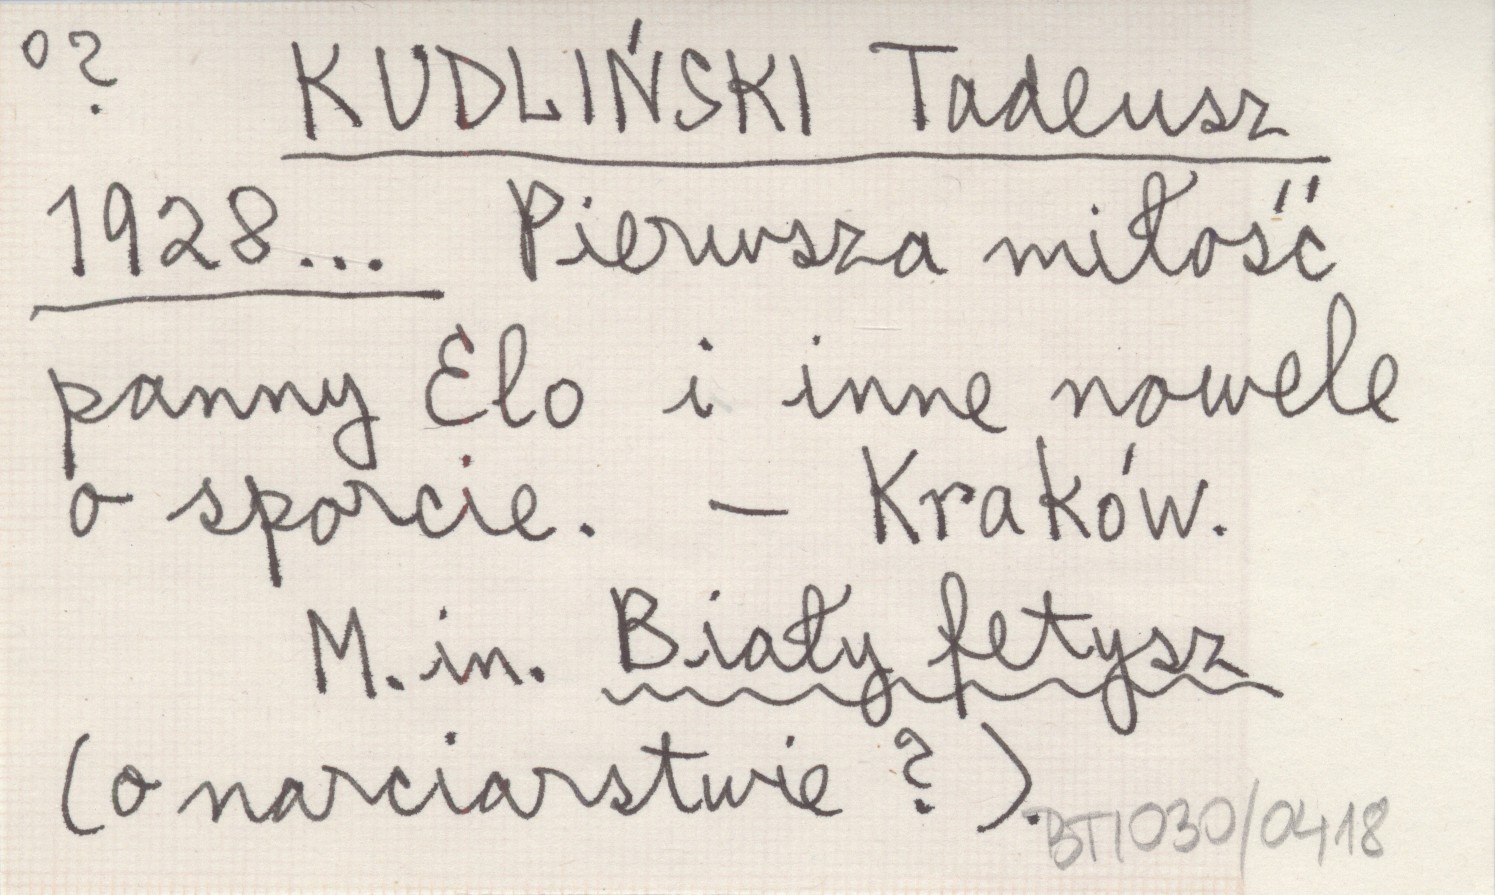 o? KUDLIŃSKI Tadeusz
1928... Pierwsza miłość
panny Elo i inne nowele
o sporcie. — Kraków.
M. in. Biały fetysz
(o narciarstwie?).
BTI030/0418